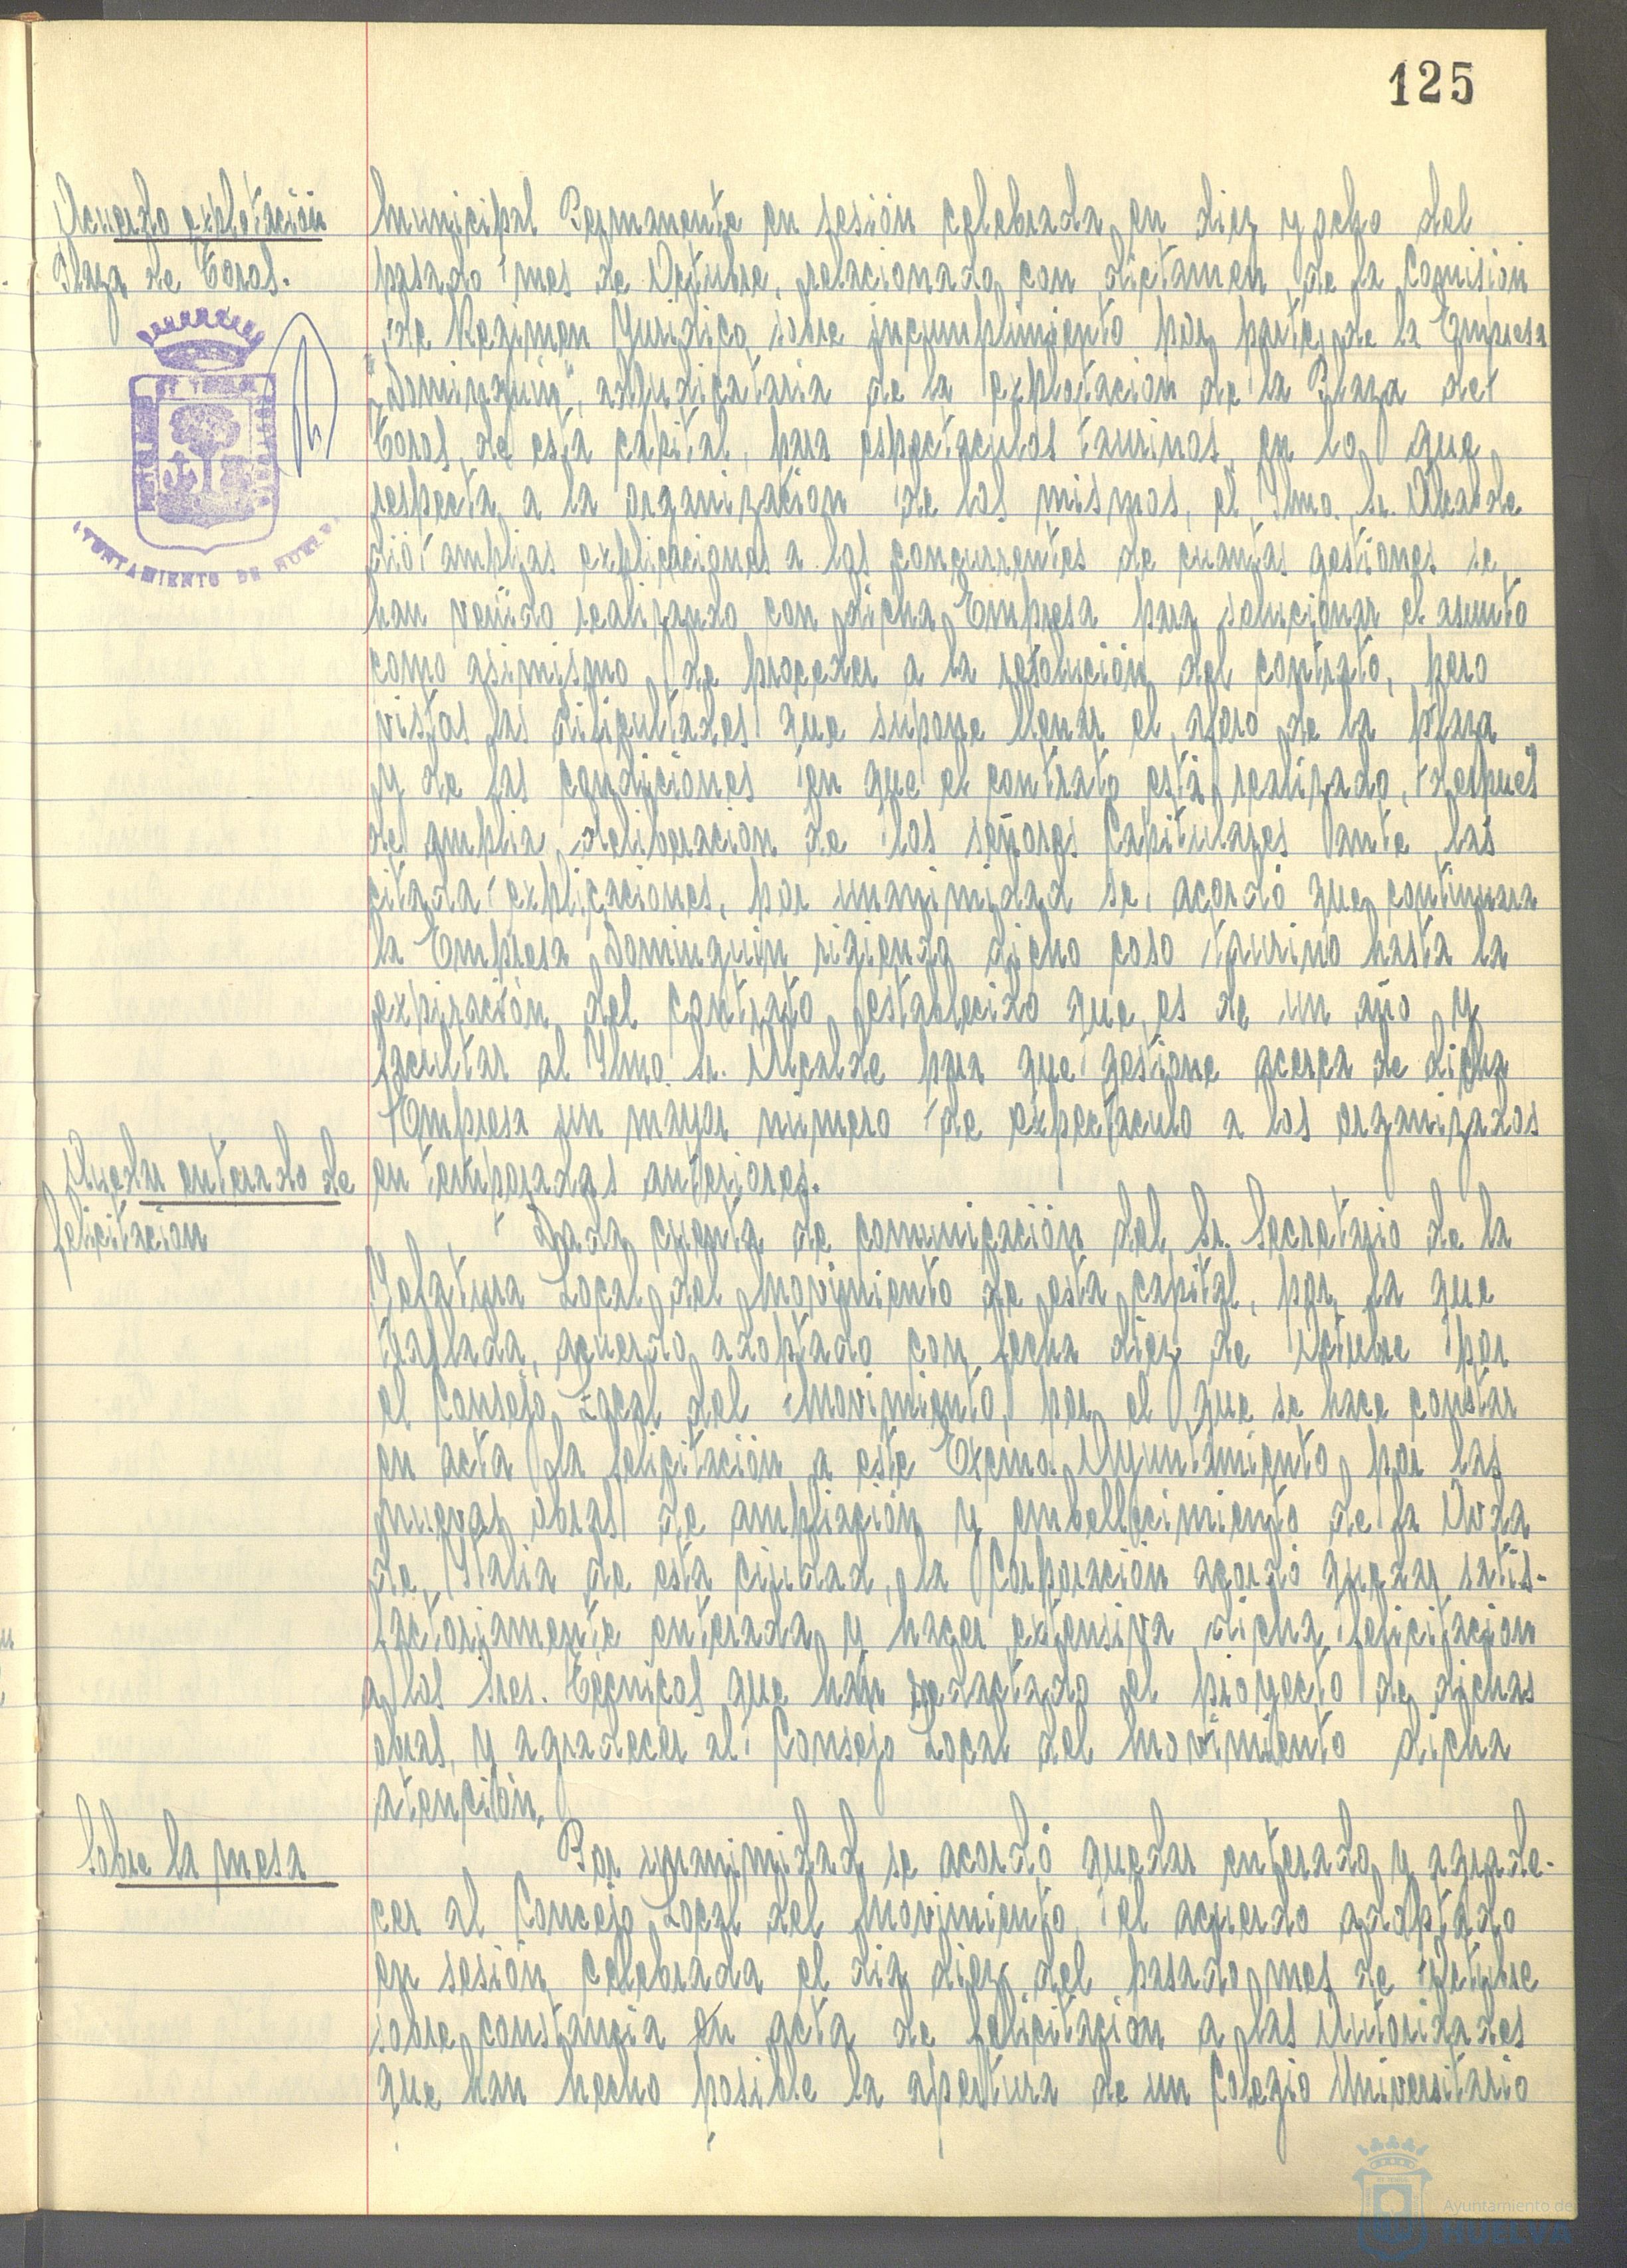 125
Acuerdo explotación
Plaza de Toros.
Municipal Permanente en sesión celebrada en diez y ocho del
pasado mes de Octubre, relacionado con dictamen de la Comisión
de Regimen Juridico sobre incumplimiento por parte de la Empresa
"Dominguin", adjudicataria de la explotación de la Plaza de
Toros de esta capital, para espectaculos taurinos, en lo que
respecta a la organización de los mismos, el Ilmo. Sr. Alcalde
dió amplias explicaciones a los concurrentes de cuantas gestiones se
han venido realizando con dicha Empresa para solucionar el asunto
como asimismo de proceder a la resolución del contrato, pero
vistas las dificultades que supone llenar el aforo de la plaza
y de las condiciones en que el contrato está realizado, despues
de amplia deliberación de los señores Capitulares ante las
citada explicaciones, por unanimidad se acordó que continuara
la Empresa Dominguin rigiendo dicho coso taurino hasta la
expiración del contrato establecido que es de un año y
facultar al Ilmo. Sr. Alcalde para que gestione acerca de dicha
Empresa un mayor número de espectaculo a los organizados
en temporadas anteriores.
AYUNTAMIENTO DE HUELVA
Quedar enterado de
felicitación
Dada cuenta de comunicación del Sr. Secretario de la
Jefatura Local del Movimiento de esta capital, por la que
traslada acuerdo adoptado con fecha diez de Octubre por
el Consejo Local del Movimiento, por el que se hace constar
en acta la felicitación a este Excmo. Ayuntamiento por las
nuevas obras de ampliación y embellecimiento de la Avda
de Italia de esta ciudad, la Corporación acordó quedar satis-
factoriamente enterada y hacer extensiva dicha felicitación
a los Sres. Técnicos que han redactado el proyecto de dichas
obras, y agradecer al Consejo Local del Movimiento dicha
atención.
Sobre la mesa
Por unanimidad se acordó quedar enterado y agrade-
cer al Concejo Local del Movimiento, el acuerdo adoptado
en sesión celebrada el dia diez del pasado mes de Octubre
sobre constancia en acta de felicitación a las Autoridades
que han hecho posible la apertura de un Colegio Universitario
Ayuntamiento de
HUELVA